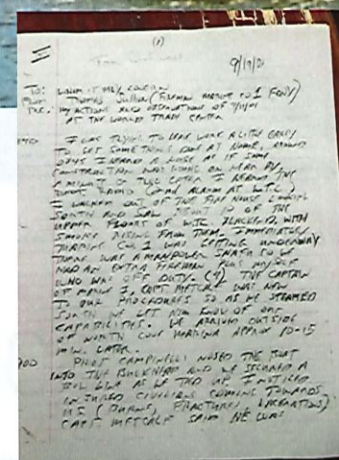 (1)
9/17/01
TO: WHOM IT MAY CONCERN
FROM: THOMAS SULLIVAN (FIREMAN MARINE CO 1 FDNY)
RE: MY ACTIONS AND OBSERVATIONS OF 9/11/01
AT THE WORLD TRADE CENTER
I WAS TRYING TO LEAVE WORK A LITTLE EARLY
TO GET SOMETHING DONE AT HOME, AROUND
I HEARD A NOISE AS IF SOME
CONSTRUCTION WAS GOING ON NEAR BY
A MINUTE OR TWO LATER I HEARD THE
ALARM AT WTC
I WALKED OUT OF THE FIRE HOUSE LOOKING
SOUTH AND SAW ABOUT 10 OF THE
UPPER FLOORS OF WTC BLACKENED, WITH
SMOKE RISING FROM THEM. IMMEDIATELY
MARINE CO. 1 WAS GETTING UNDERWAY
THERE WAS A MANPOWER SO WE
HAD AN EXTRA FIREMAN PLUS MYSELF
WHO WAS OFF DUTY. THE CAPTAIN
OF MARINE 1 CAPT METCALF WAS NEW
TO OUR PROCEDURES SO AS WE STEAMED
SOUTH WE LET HIM KNOW OF OUR
CAPABILITIES. WE ARRIVED OUTSIDE
OF NORTH COVE MARINA APPROX 10-15
MIN. LATER.
PILOT CAMPANELLI NOSED THE BOAT
INTO THE BULKHEAD AND WE SECURED A
BOW LINE AS WE TIED UP I NOTICED
INJURED CIVILIANS COMING TOWARDS
US (BURNS, FRACTURES, LACERATIONS)
CAPT METCALF SAID HE WAS